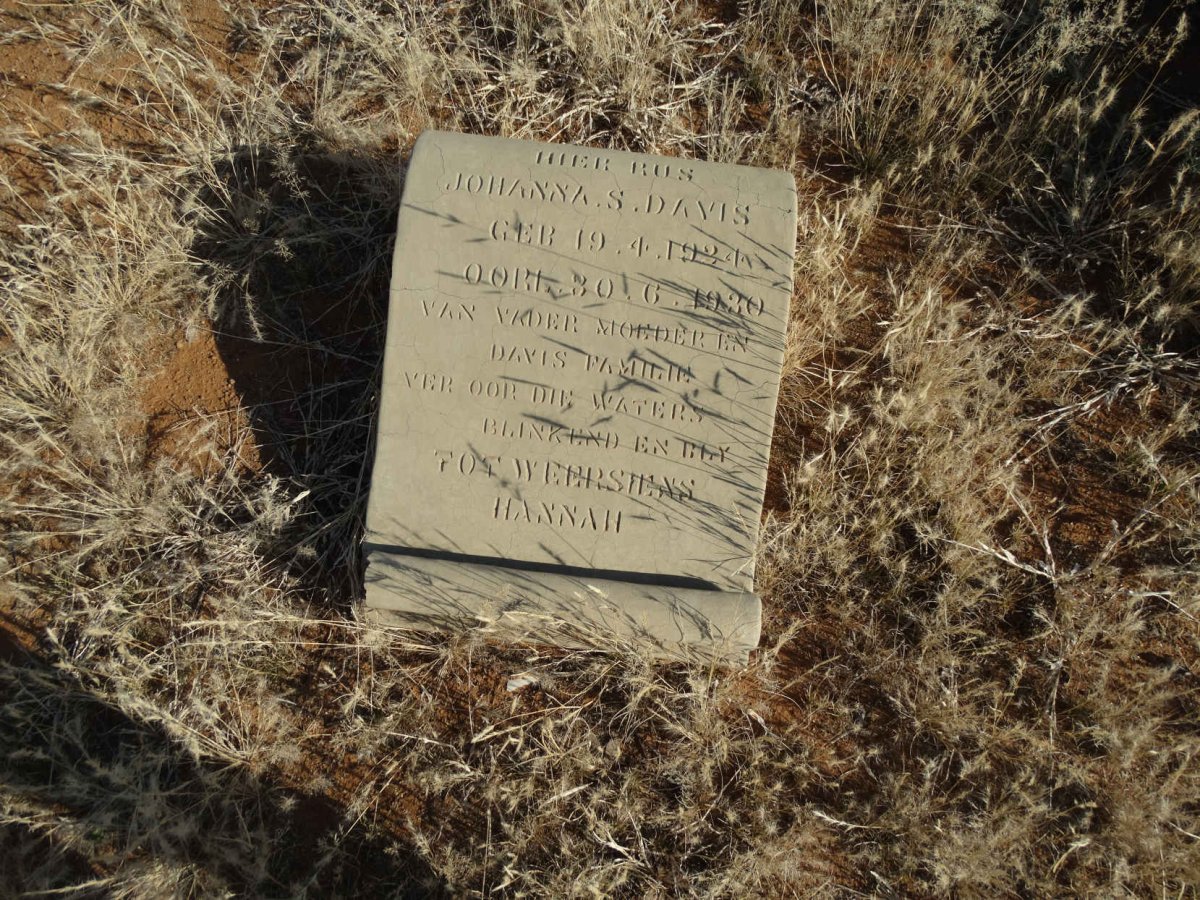 HIER RUS
JOHANNA.S.DAVIS
GEB 19.4.1924
OORL 30.6.1930
VAN VADER MOEDER EN
DAVIS FAMILIE
VER OOR DIE WATERS
BLINKEND EN BLY
TOT WEERSIENS
HANNAH